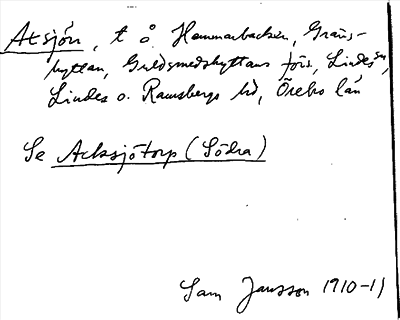 Acksjön, t å Hammarbacken, Gräns-
hyttan, Guldsmedshyttans förs, Lindessn,
Lindes o. Ramsbergs hd, Örebro län
Se Acksjötorp (Södra)
Sam Jansson 1910-11